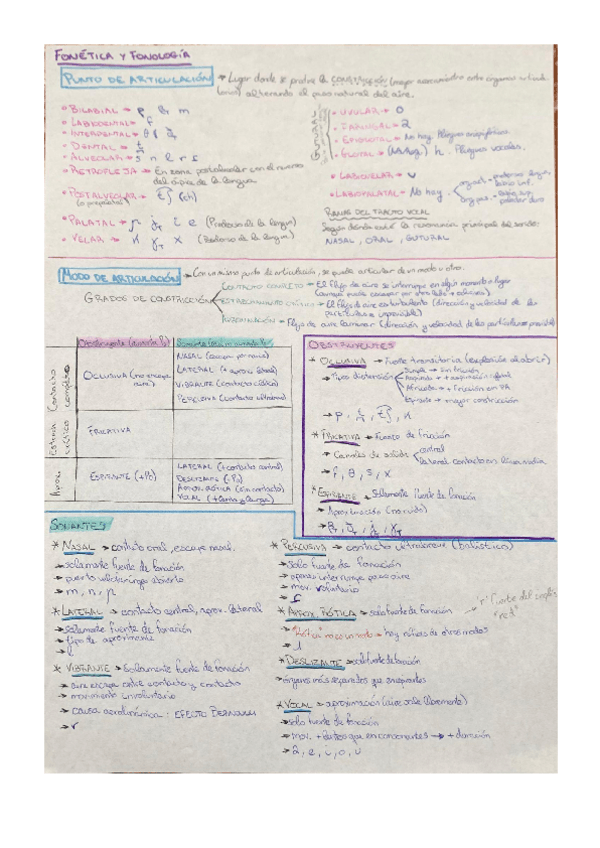 FONÉTICA Y FONOLOGÍA
PUNTO DE ARTICULACIÓN → Lugar donde se produce la CONSTRICCIÓN (mayor acercamiento entre órganos articula-
torios) alterando el paso natural del aire.
• BILABIAL → p b m
• LABIODENTAL → f
• INTERDENTAL → θ
• DENTAL → t
• ALVEOLAR → s n l r ɾ
• RETROFLEJA → En zona postalveolar con el reverso
del ápice de la lengua.
• POSTALVEOLAR → (ch)
(o prepalatal)
• PALATAL → i e (Predorso de la lengua)
• VELAR → K x (Postdorso de la lengua)
GUTURAL
• UVULAR → O
• FARINGAL → 2
• EPIGLOTAL → No hay. Pliegues ariepiglóticos
• GLOTAL → h. Pliegues vocales.
• LABIOVELAR → u
• LABIOPALATAL → No hay
RAMAS DEL TRACTO VOCAL
Según dónde esté la resonancia principal del sonido:
NASAL, ORAL, GUTURAL
MODO DE ARTICULACIÓN → Con un mismo punto de articulación, se puede articular de un modo u otro.
GRADOS DE CONSTRICCIÓN
CONTACTO COMPLETO → El flujo de aire se interrumpe en algún momento o lugar
ESTRECHAMIENTO CRÍTICO → El flujo de aire es turbulento (dirección y velocidad de las
partículas es imprevisible)
APROXIMACIÓN → Flujo de aire laminar (dirección y velocidad de las partículas es previsible)
Contacto completo
OCLUSIVA (no escapa
aire)
NASAL (escape por nariz)
LATERAL (+ apertura lateral)
VIBRANTE (contacto cíclico)
PERCUSIVA (contacto ultrabreve)
FRICATIVA
ESPIRANTE (+Po)
LATERAL (+ contacto central)
DESLIZANTE (-Po)
APROX. RÓTICA (sin contacto)
VOCAL (+ lenta y larga)
OBSTRUYENTES
* OCLUSIVA → Fuente transitoria (explosión al abrir)
→ Tipos distensión
Simple → sin fricción
Aspirada → + aspiración glotal
Africada → + fricción en PA
Eyectiva → + mayor constricción
→ p, t, K
* FRICATIVA → Fuente de fricción
→ Canales de salida
central
lateral: contacto en línea media
→ f, θ, s, x
* ESPIRANTE → Solamente fuente de fonación
→ Aproximación (no ruido)
SONANTES
* NASAL → contacto oral, escape nasal.
→ solamente fuente de fonación
→ puerto velofaríngeo abierto
→ m, n, ɲ
* LATERAL → contacto central, aprox. lateral
→ solamente fuente de fonación
→ tipo de aproximante
→ l
* VIBRANTE → Solamente fuente de fonación
→ aire escapa entre contacto y contacto
→ movimiento involuntario
→ causa aerodinámica: EFECTO BERNOULLI
→ r
* PERCUSIVA → contacto ultrabreve (balístico)
→ solo fuente de fonación
→ apenas interrumpe paso aire
→ mov. voluntario
→ ɾ
* APROX. RÓTICA → solo fuente de fonación → "r" fuerte del inglés
"red"
→ Rótica no es un modo → hay róticas de otros modos
* DESLIZANTE → solo fuente de fonación
→ órganos más separados que en espirantes
* VOCAL → aproximación (aire sale libremente)
→ solo fuente de fonación
→ mov. + lento que en consonantes → + duración
→ a, e, i, o, u